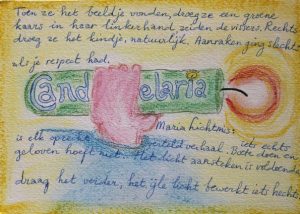 Toen ze het beeldje vonden, droeg ze een groene
kaars in haar linkerhand, zeiden de vissers. Rechts
droeg ze het kindje, natuurlijk. Aanraken ging slecht
als je respect had.
Candelaria
Maria Lichtmis:
is elk oprecht verteld verhaal. iets echts
geloven hoeft niet. Boete doen en
Het licht aansteken is voldoende
draag het verder, het ijle licht bewerkt iets hechts